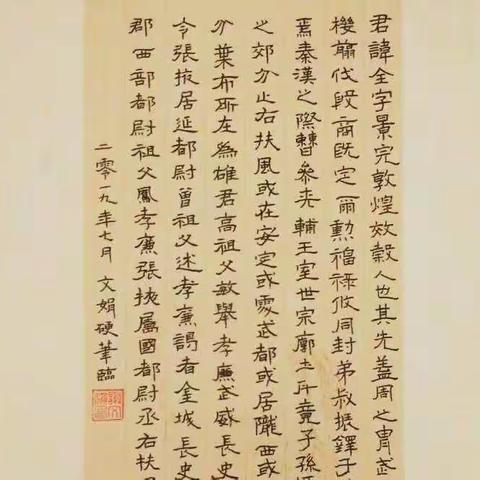 君諱全字景完敦煌效穀人也其先蓋周之胄武
機翦伐殷商既定爾勳福祿攸同封弟叔振鐸于
焉秦漢之際曹參夾輔王室世宗廓土斥竟子孫
之郊分止右扶風或在安定或處武都或居隴西或
分葉布所在為雄君高祖父敏舉孝廉武威長史
令張掖居延都尉曾祖父述孝廉謁者金城長史
郡西部都尉祖父鳳孝廉張掖屬國都尉丞右扶
二零一九年七月文娟硬筆臨